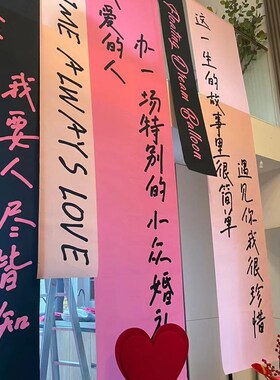 我要人尽皆知
ME ALWAYS LOVE
爱的人
办一场特别的小众婚礼
Floating Dream Balloon
这一生的故事里很简单
遇见你我很珍惜